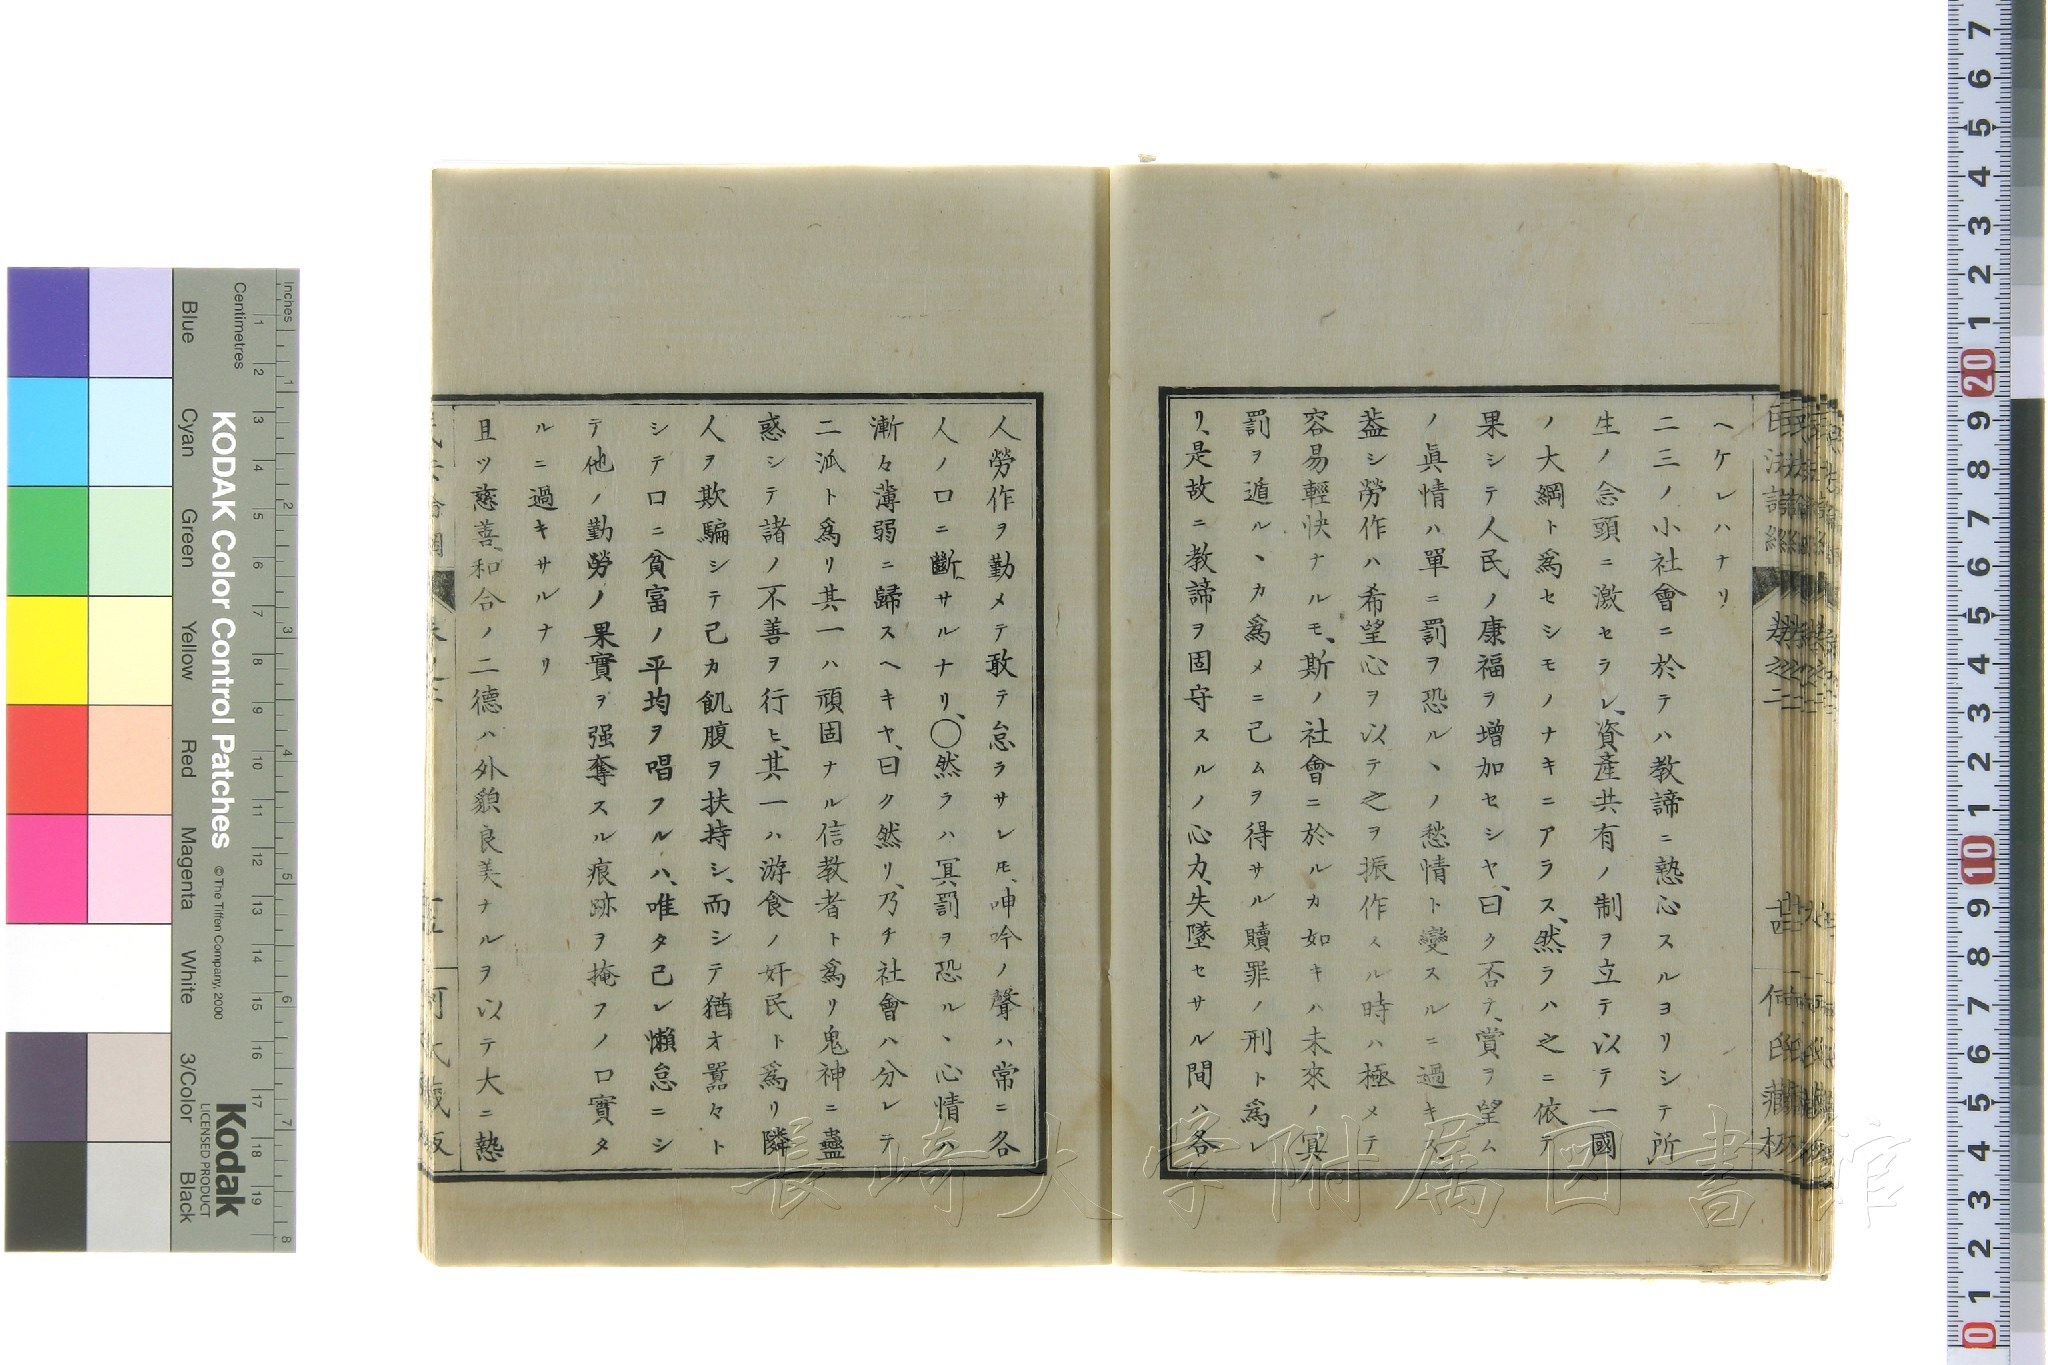 ヘケレハナリ
二三ノ小社會ニ於テハ教諦ニ熱心スルヨリシテ所
生ノ念頭ニ激セラレ、資產共有ノ制ヲ立テ以テ一國
ノ大綱ト爲セシモノナキニアラス、然ラハ之ニ依テ
果シテ人民ノ康福ヲ增加セシヤ、曰ク否ナ、賞ヲ望ム
ノ眞情ハ單ニ罰ヲ恐ルヽノ愁情ト變スルニ過キス
葢シ勞作ハ希望心ヲ以テ之ヲ振作スル時ハ極メテ
容易輕快ナルモ、斯ノ社會ニ於ルカ如キハ未來ノ冥
罰ヲ遁ルヽカ爲メニ己ムヲ得サル贖罪ノ刑ト爲レ
リ、是故ニ教諦ヲ固守スルノ心力、失墜セサル間ハ各
人勞作ヲ勤メテ敢テ怠ラサレ𪜈、呻吟ノ聲ハ常ニ各
人ノ口ニ斷、サルナリ、〇然ラハ冥罰ヲ恐ルヽ心情ハ
漸々薄弱ニ歸スヘキヤ、曰ク然リ、乃チ社會ハ分レテ
二派ト爲リ其一ハ頑固ナル信教者ト爲リ鬼神ニ蠱
惑シテ諸ノ不善ヲ行ヒ、其一ハ游食ノ奸民ト爲リ隣
人ヲ欺騙シテ己カ飢腹ヲ扶持シ、而シテ猶オ嚚々ト
シテ口ニ貧富ノ平均ヲ唱フルハ、唯タ己レ懶怠ニシ
テ他ノ勤勞ノ果實ヲ强奪スル痕跡ヲ掩フノ口實タ
ルニ過キサルナリ
且ツ慈善、和合ノ二德ハ外貌良美ナルヲ以テ大ニ熱
民法論綱 卷之二 何氏藏板
長崎大学附属図書館
KODAK Color Control Patches
© The Tiffen Company, 2000
Kodak
LICENSED PRODUCT
Inches 1 2 3 4 5 6 7 8
Centimetres 1 2 3 4 5 6 7 8 9 10 11 12 13 14 15 16 17 18 19
Blue Cyan Green Yellow Red Magenta White 3/Color Black
7 6 5 4 3 2 1 20 9 8 7 6 5 4 3 2 1 10 9 8 7 6 5 4 3 2 1 0